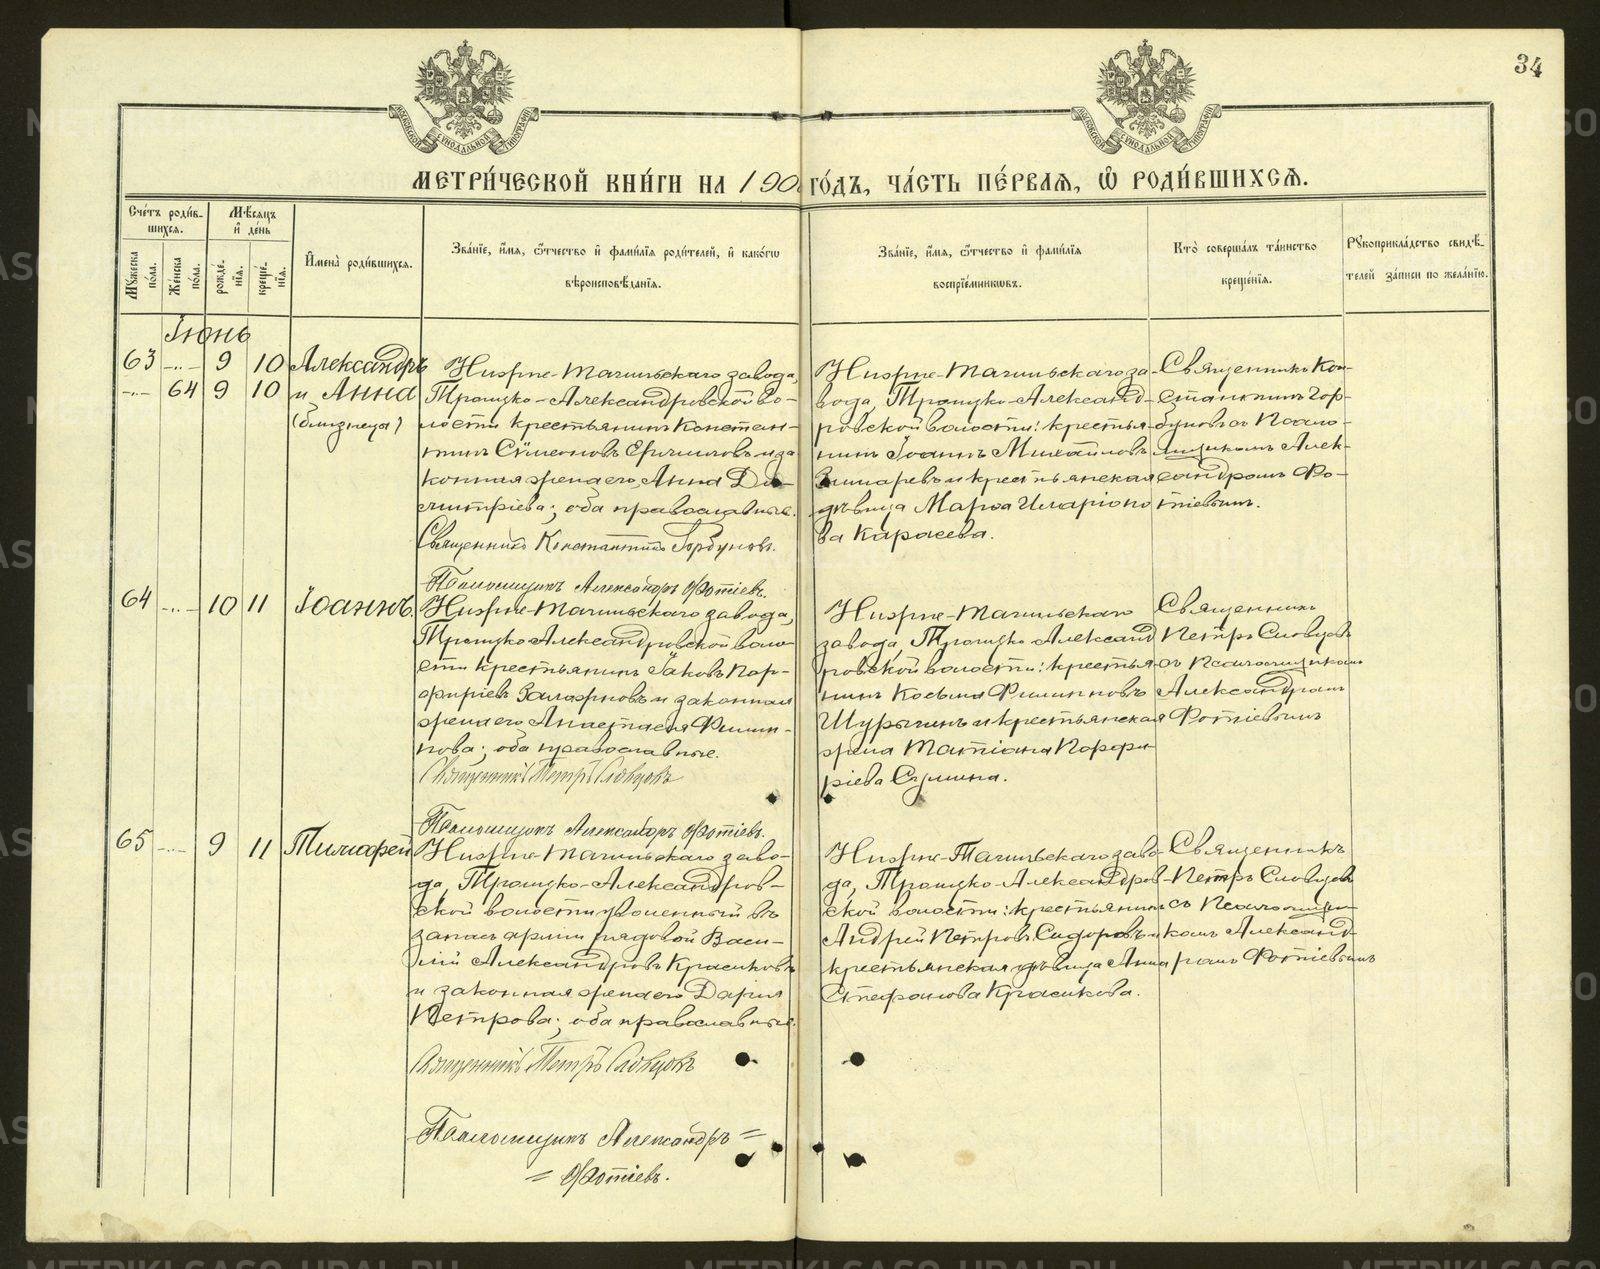 34
МОСКОВСКОЙ СѴНОДАЛЬНОЙ ТИПОГРАФІИ
МОСКОВСКОЙ СѴНОДАЛЬНОЙ ТИПОГРАФІИ
МЕТРИ́ЧЕСКОЙ КНИ́ГИ НА 190
ГО́ДЪ, ЧА́СТЬ ПЕ́РВАѦ, Ѽ РОДИ́ВШИХСѦ.
Счётъ роди́в-
шихсѧ.
Мѣ́сѧцъ
и҆ де́нь
Мꙋ́жеска
по́ла.
Же́нска
по́ла.
рожде́-
нїѧ.
креще́-
нїѧ.
И҆мена̀ роди́вшихсѧ.
Зва́нїе, и҆́мѧ, ѻ҆́тчество и҆ фами́лїѧ роди́телей, и҆ како́гѡ
вѣроисповѣ́данїѧ.
Зва́нїе, и҆́мѧ, ѻ҆́тчество и҆ фами́лїѧ
воспрїе́мникѡвъ.
Кто̀ соверша́лъ та́инство
креще́нїѧ.
Рꙋкоприкла́дство свидѣ́-
телей за́писи по жела́нїю.
Іюнь
63 -„- 9 10 Александръ
-„- 64 9 10 и Анна
(близнецы)
Нижне-Тагильскаго завода,
Троицко-Александровской во-
лости крестьянинъ Констан-
тинъ Сѵмеоновъ Ермиловъ и за
конная жена его, Анна Ди-
митріева; оба православные.
Священникъ Константинъ Горбуновъ.
Псаломщикъ Александръ Фотіевъ.
Нижне-Тагильскаго за-
вода, Троицко-Александ-
ровской волости: крестья-
нинъ Іоаннъ Михаиловъ
и крестьянская
дѣвица Марѳа Иларіоно
ва Карасева.
Священникъ Кон-
стантинъ Гор-
буновъ съ Псало-
мщикомъ Алек-
сандромъ Фо-
тіевымъ.
64 -„- 10 11 Іоаннъ.
Нижне-Тагильскаго завода,
Троицко-Александровской воло-
сти крестьянинъ Іаковъ Пор-
фиріевъ и законная
жена его Анастасія Филип-
пова; оба православные.
Священникъ Петръ Словцовъ
Псаломщикъ Александръ Фотіевъ.
Нижне-Тагильскаго
завода, Троицко-Александ
ровской волости: крестья-
нинъ Косьма Филипповъ
Шурыгинъ и крестьянская
жена Татіана Порфи
ріева Сулина.
Священникъ
Петръ Словцовъ
съ Псаломщикомъ
Александромъ
Фотіевымъ
65 -„- 9 11 Тимофей
Нижне-Тагильскаго заво-
да, Троицко-Александров-
ской волости уволенный въ
запасъ арміи рядовой Васи-
лій Александровъ Красиковъ
и законная жена его Дарія
Петрова; оба православные.
Священникъ Петръ Словцовъ
Псаломщикъ Александръ =
= Фотіевъ.
Нижне-Тагильскаго заво-
да, Троицко-Александров-
ской волости: крестьянинъ
Андрей Петровъ Сидоровъ и
крестьянская дѣвица Анна
Стефанова Красикова.
Священникъ
Петръ Словцовъ
съ Псаломщи-
комъ Александ-
ромъ Фотіевымъ